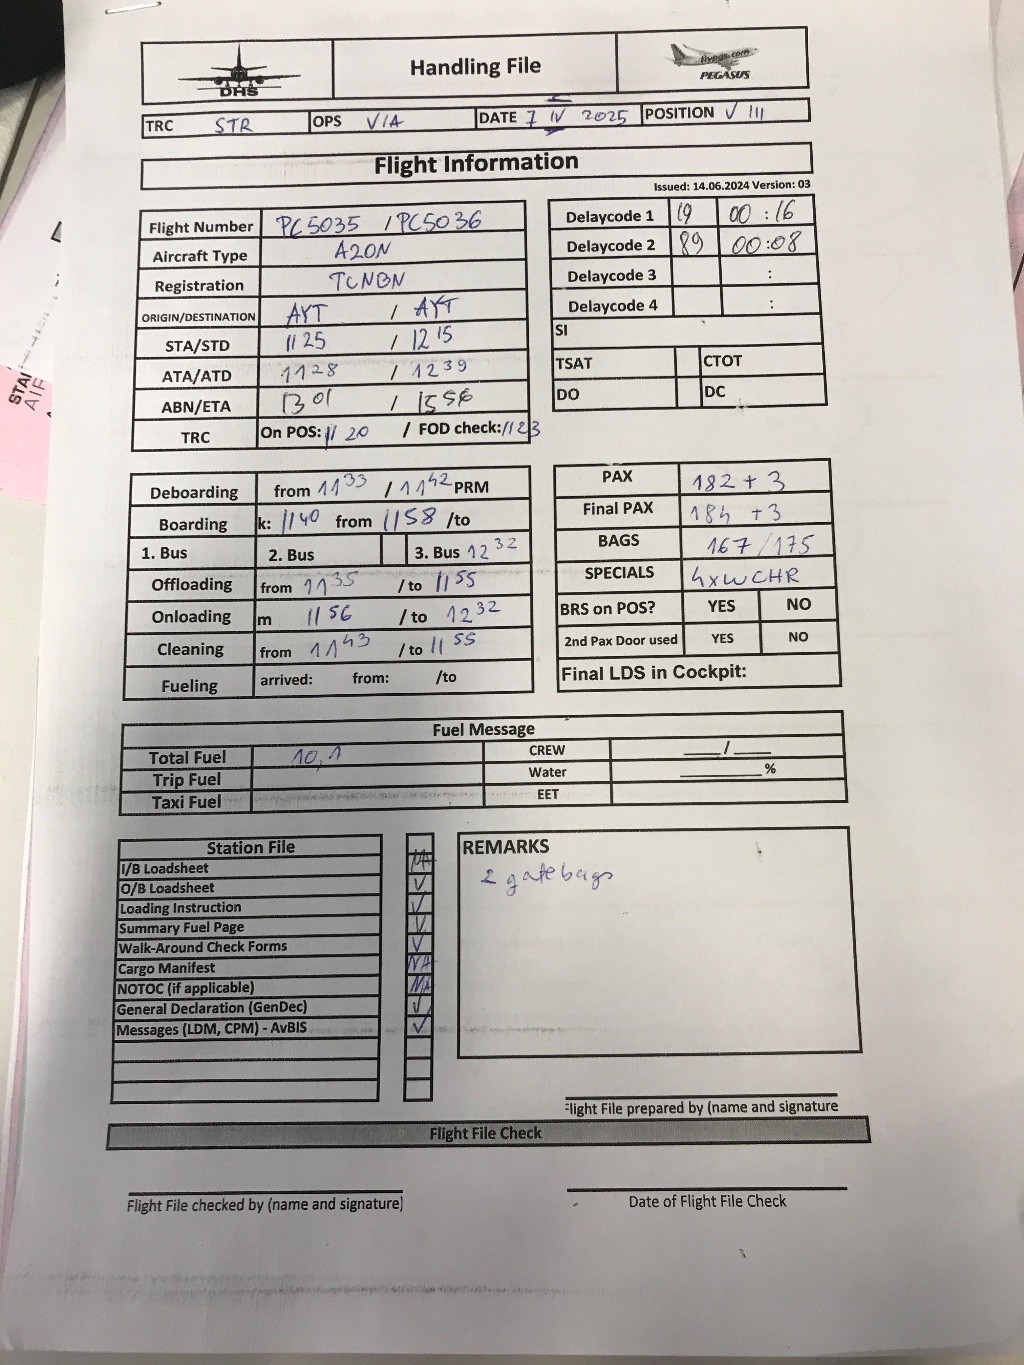 DHS
Handling File
flypgs.com
PEGASUS
TRC STR OPS VIA DATE 7 IV 2025 POSITION V III
Flight Information
Issued: 14.06.2024 Version: 03
Flight Number PC5035 / PC5036
Aircraft Type A20N
Registration TCNBN
ORIGIN/DESTINATION AYT / AYT
STA/STD 1125 / 1215
ATA/ATD 1128 / 1239
ABN/ETA 1301 / 1556
TRC On POS: 1120 / FOD check: 1123
Delaycode 1 19 00:16
Delaycode 2 89 00:08
Delaycode 3 :
Delaycode 4 :
SI
TSAT CTOT
DO DC
Deboarding from 1133 / 1142 PRM
Boarding k: 1140 from 1158 /to
1. Bus 2. Bus 3. Bus 1232
Offloading from 1135 / to 1155
Onloading m 1156 / to 1232
Cleaning from 1143 / to 1155
Fueling arrived: from: /to
PAX 182 + 3
Final PAX 184 + 3
BAGS 167 / 175
SPECIALS 4xWCHR
BRS on POS? YES NO
2nd Pax Door used YES NO
Final LDS in Cockpit:
Fuel Message
Total Fuel 10,1 CREW ___/___
Trip Fuel Water ________%
Taxi Fuel EET
Station File
I/B Loadsheet NA
O/B Loadsheet ✓
Loading Instruction ✓
Summary Fuel Page ✓
Walk-Around Check Forms ✓
Cargo Manifest NA
NOTOC (if applicable) NA
General Declaration (GenDec) ✓
Messages (LDM, CPM) - AvBIS ✓
REMARKS
2 gatebags
Flight File prepared by (name and signature
Flight File Check
Flight File checked by (name and signature)
Date of Flight File Check